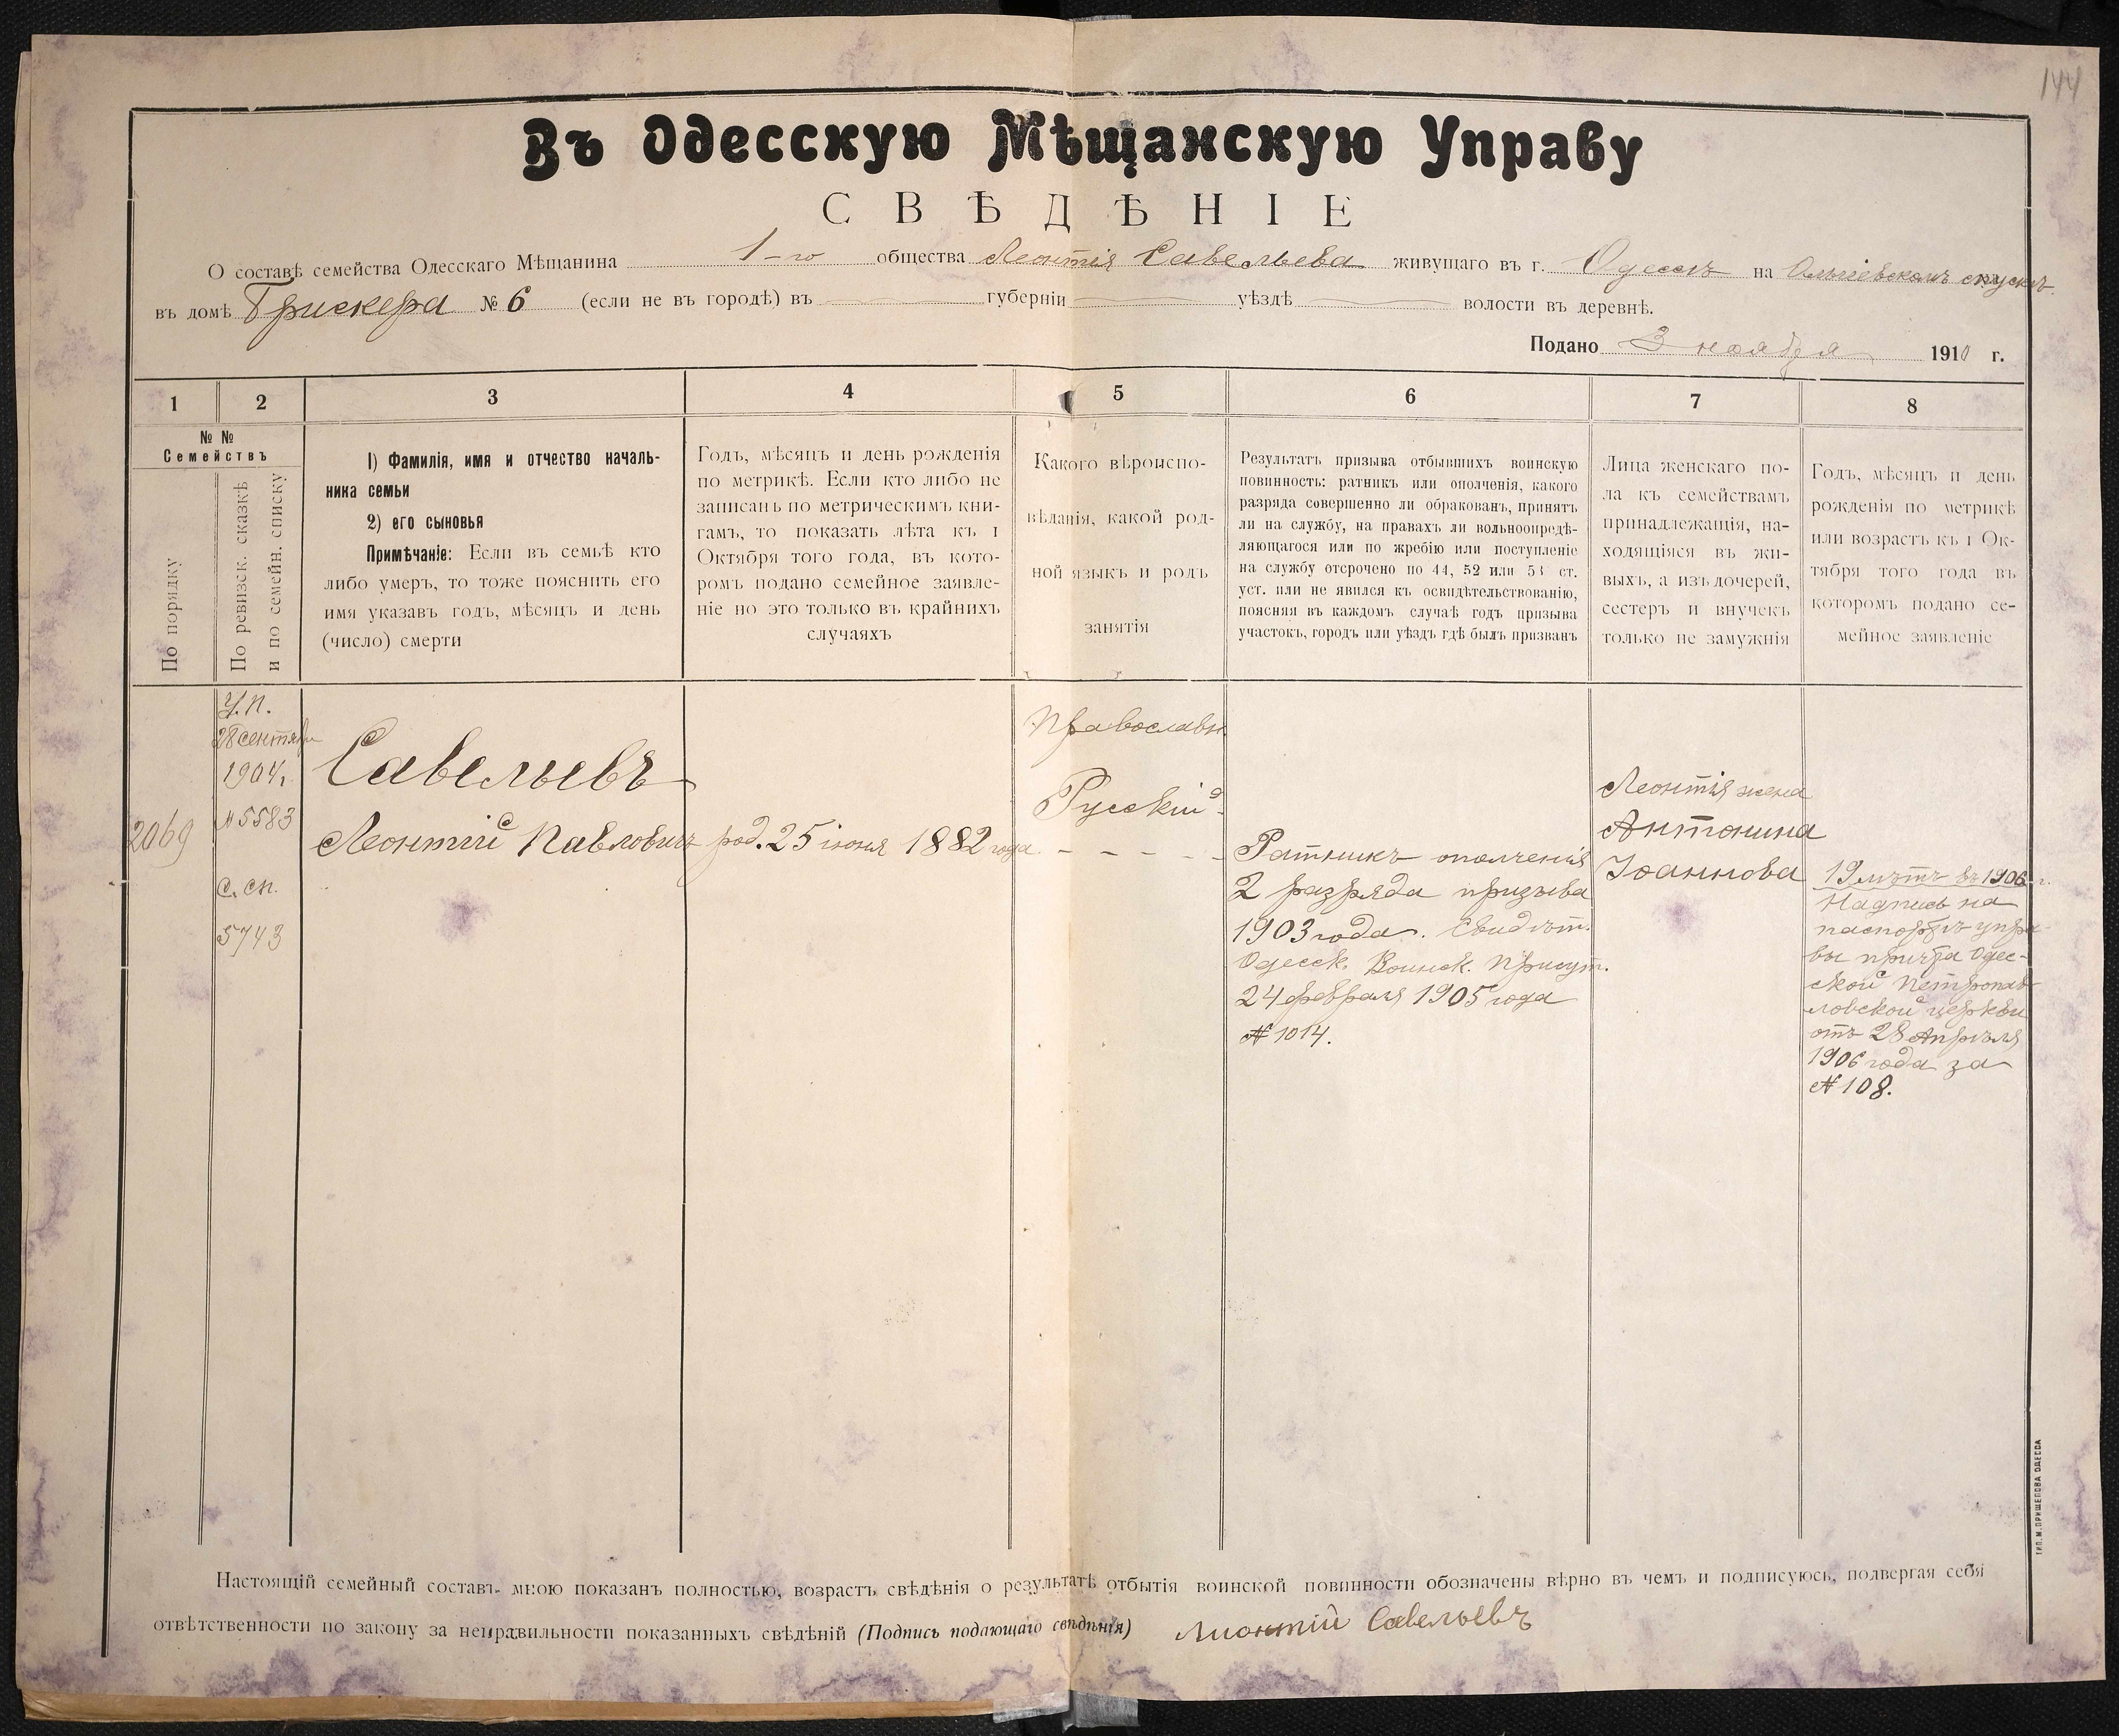 144
Въ Одесскую Мѣщанскую Управу
СВѢДѢНІЕ
О составѣ семейства Одесскаго Мѣщанина 1-го общества Леонтія Савельева живущаго въ г. Одессѣ на Ольгіевскомъ спускѣ
въ домѣ Грискера № 6 (если не въ городѣ) въ губерніи уѣздѣ волости въ деревнѣ.
Подано 3 ноября 1910 г.
1 2 3 4 5 6 7 8
№ №
Семействъ
По порядку
По ревизск. сказкѣ
и по семейн. списку
1) Фамилія, имя и отчество началь-
ника семьи
2) его сыновья
Примѣчаніе: Если въ семьѣ кто
либо умеръ, то тоже пояснить его
имя указавъ годъ, мѣсяцъ и день
(число) смерти
Годъ, мѣсяцъ и день рожденія
по метрикѣ. Если кто либо не
записанъ по метрическимъ кни-
гамъ, то показать лѣта къ 1
Октября того года, въ кото-
ромъ подано семейное заявле-
ніе но это только въ крайнихъ
случаяхъ
Какого вѣроиспо-
вѣданія, какой род-
ной языкъ и родъ
занятія
Результатъ призыва отбывшихъ воинскую
повинность: ратникъ или ополченія, какого
разряда совершенно ли обракованъ, принятъ
ли на службу, на правахъ ли вольноопредѣ-
ляющагося или по жребію или поступленіе
на службу отсрочено по 44, 52 или 53 ст.
уст. или не явился къ освидѣтельствованію,
поясняя въ каждомъ случаѣ годъ призыва
участокъ, городъ или уѣздъ гдѣ былъ призванъ
Лица женскаго по-
ла къ семействамъ
принадлежащія, на-
ходящіяся въ жи-
выхъ, а изъ дочерей,
сестеръ и внучекъ
только не замужнія
Годъ, мѣсяцъ и день
рожденія по метрикѣ
или возрастъ къ 1 Ок-
тября того года въ
которомъ подано се-
мейное заявленіе
2069
У.П.
28 сентября
1904 г.
№ 5583
С. сп.
5743
Савельевъ
Леонтій Павловичъ
род. 25 іюня 1882 года
Православн.
Русскій
Ратникъ ополченія
2 разряда призыва
1903 года. Свидѣт.
Одесск. Воинск. Присут.
24 февраля 1905 года
№ 1014.
Леонтія жена
Антонина
Іоаннова
19 лѣтъ въ 1906 г.
Надпись на
паспортѣ упра-
вы причта Одес-
ской Петропав-
ловской церкви
отъ 28 Апрѣля
1906 года за
№ 108.
Настоящій семейный составъ мною показанъ полностью, возрастъ свѣдѣнія о результатѣ отбытія воинской повинности обозначены вѣрно въ чемъ и подписуюсь, подвергая себя
отвѣтственности по закону за неправильности показанныхъ свѣдѣній (Подпись подающаго свѣдѣнія) Лионтий Савельевъ
ТИП. М. ПРИЩЕПОВА ОДЕССА